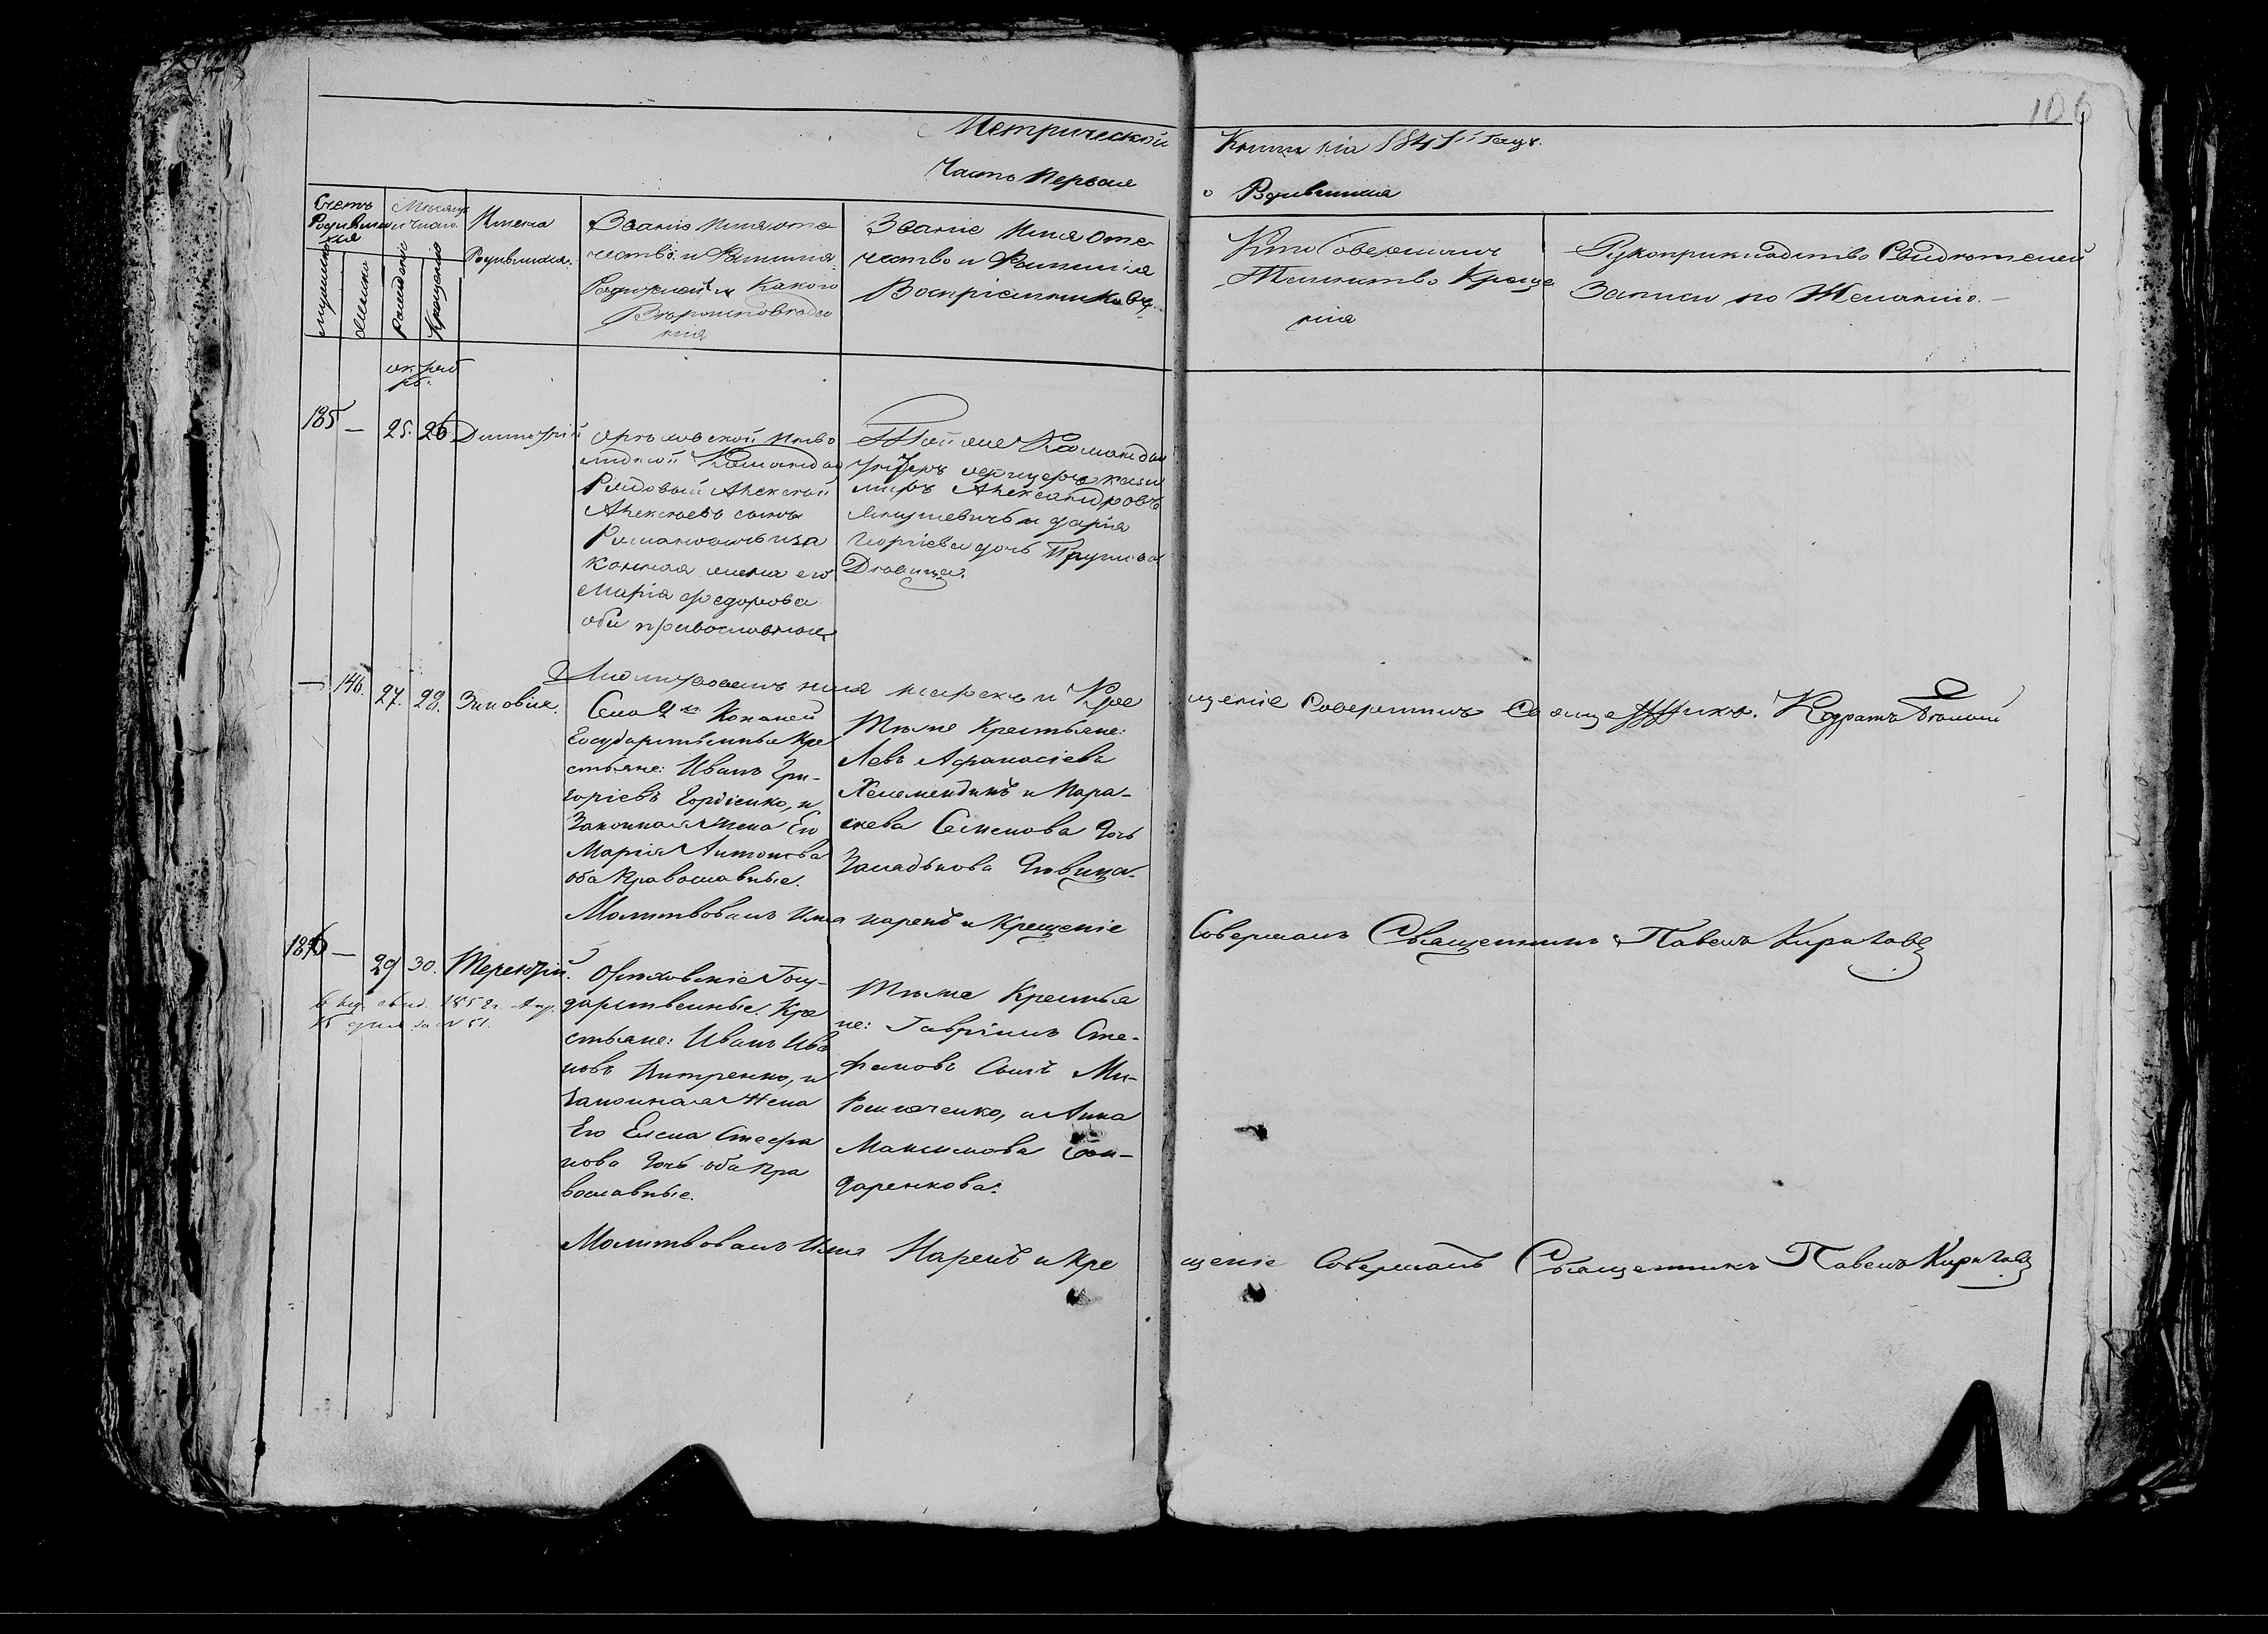 106
Метрической Книги на 1841й годъ.
Часть Первая о Родившихся
Счетъ Родившихся
мужеска
женска
Месяцъ и число.
рожденія
Крещенія
Имена Родившихся.
Званіе Имя отечество. и Фамилія Родителей и Какого Вероисповеданія
Званіе Имя Отечество и Фамилія Воспріемниковъ.
Кто Совершалъ Таинство Крещенія
Рукоприкладство Свидетелей Записи по Желанію. —
октября
185 — 25. 26 Димитрій
Ореховской Инвалидной Команды
Рядовый Алексей
Алексеевъ сынъ
Романовъ и законная жена его
Марія Федорова
оба православные
Той же Команды
унтеръ офицеръ
Александровъ
Янушевичъ и Дарія
Георгіева дочь
Девица.
Молитвовалъ имя нарекъ и Крещеніе Совершилъ Священникъ. Кодратъ
— 146. 27. 28. Зиновія.
Села Копаней
Государственные Кре
стьяне: Иванъ Гри-
горіевъ Гордіенко, и
Законная Жена Его
Марія Антонова
оба Православные.
Теже Крестьяне:
Левъ Афанасіевъ
и Пара-
скева Семенова Дочь
Девица.
Молитвовалъ Имя нарекъ и Крещеніе Совершалъ Священникъ Павелъ
186 — 29 30. Терентій.
Ореховскіе Госу-
дарственные. Кре
стьяне: Иванъ Ива
новъ Дмитренко, и
Законная Жена
Его Елена Стефа
нова Дочь оба Пра
вославные.
Теже Крестья
не: Гавріилъ Сте-
фановъ Сынъ Ми-
рошниченко, и Анна
Максимова Бон-
даренкова.
1852
Молитвовалъ Имя Нарекъ и Кре щеніе Совершалъ Священникъ Павелъ